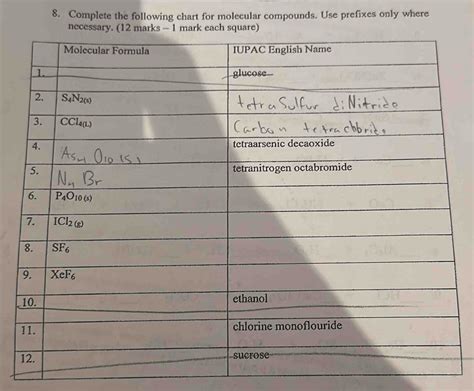 8. Complete the following chart for molecular compounds. Use prefixes only where
necessary. (12 marks – 1 mark each square)
Molecular Formula IUPAC English Name
1. glucose
2. S₄N₂(s) tetraSulfur diNitride
3. CCl₄(L) Carbon tetrachloride
4. As₄ O₁₀ (s) tetraarsenic decaoxide
5. N₄ Br tetranitrogen octabromide
6. P₄O₁₀ (s)
7. ICl₂ (g)
8. SF₆
9. XeF₆
10. ethanol
11. chlorine monoflouride
12. sucrose